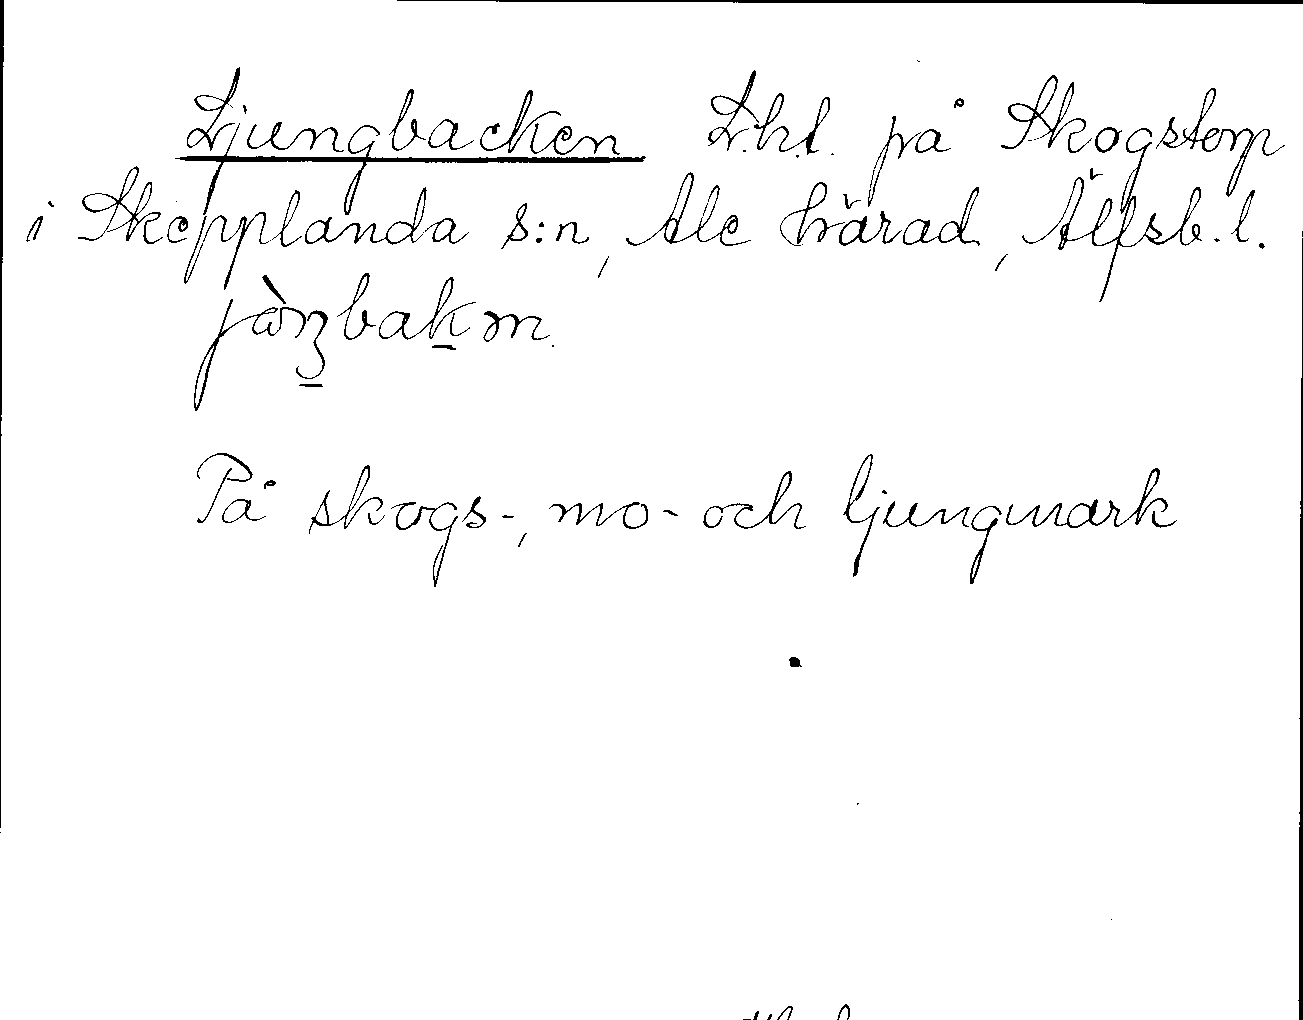 Ljungbacken L.h.t. på Skogstorp
i Skepplanda s:n, Ale härad, Älfsb. l.
På skogs-, mo- och ljungmark